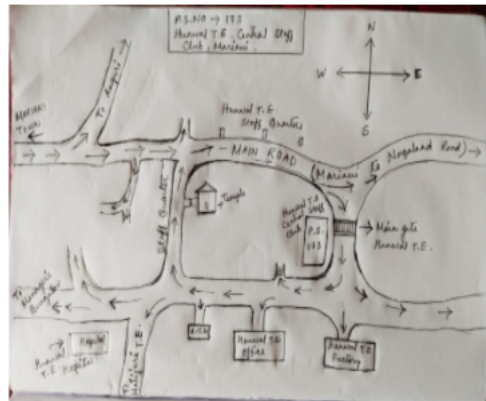 P.S. NO → 173
Hunwal T.E. Central Staff
Club, Mariani.
N
W
E
S
MARIANI
TOWN
To
Hunwal T.E
Staff Quarters
MAIN ROAD
(Mariani To Nagaland Road)
Staff Quarter
Temple
Hunwal T.E
Central Staff
Club
P.S.
173
Main gate
Hunwal T.E.
To
Manager
Bunglow
Hospital
Hunwal
T.E. Hospital
To
T.E.
Hunwal T.E
Office
Hunwal T.E
Factory